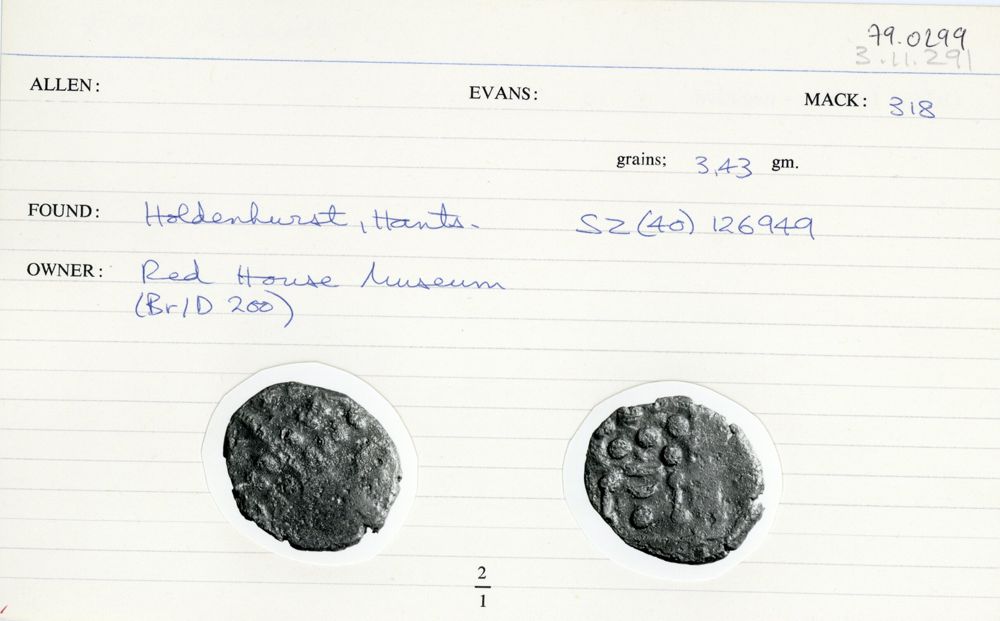 79.0299
3.11.291
ALLEN: EVANS: MACK: 318
grains; 3,43 gm.
FOUND: Holdenhurst, Hants. SZ (40) 126949
OWNER: Red House Museum
(Br/D 200)
2
1